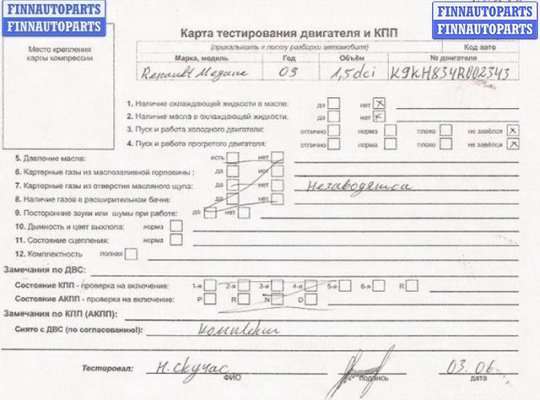 FINNAUTOPARTS
FINNAUTOPARTS
FINNAUTOPARTS
FINNAUTOPARTS
Карта тестирования двигателя и КПП
(прикалывать к листу разборки автомобиля)
Код авто
Место крепления
карты компрессии
Марка, модель Год Объём № двигателя
Renault Megane 03 1,5dci K9KH834R002343
1. Наличие охлаждающей жидкости в масле: да нет
2. Наличие масла в охлаждающей жидкости. да нет
3. Пуск и работа холодного двигателя: отлично норма плохо не завёлся
4. Пуск и работа прогретого двигателя: отлично норма плохо не завёлся
5. Давление масла: есть нет
6. Картерные газы из маслозаливной горловины: да нет
7. Картерные газы из отверстия масляного щупа: да нет
8. Наличие газов в расширительном бачке: да нет
9. Посторонние звуки или шумы при работе: да нет
10. Дымность и цвет выхлопа: норма
11. Состояние сцепления: норма
12. Комплектность полная
Замечания по ДВС:
Состояние КПП - проверка на включение: 1-я 2-я 3-я 4-я 5-я 6-я R
Состояние АКПП - проверка на включение: P R N D
Замечания по КПП (АКПП):
Снято с ДВС (по согласованию!):
Тестировал: Н. Скучас 03.06
ФИО подпись дата